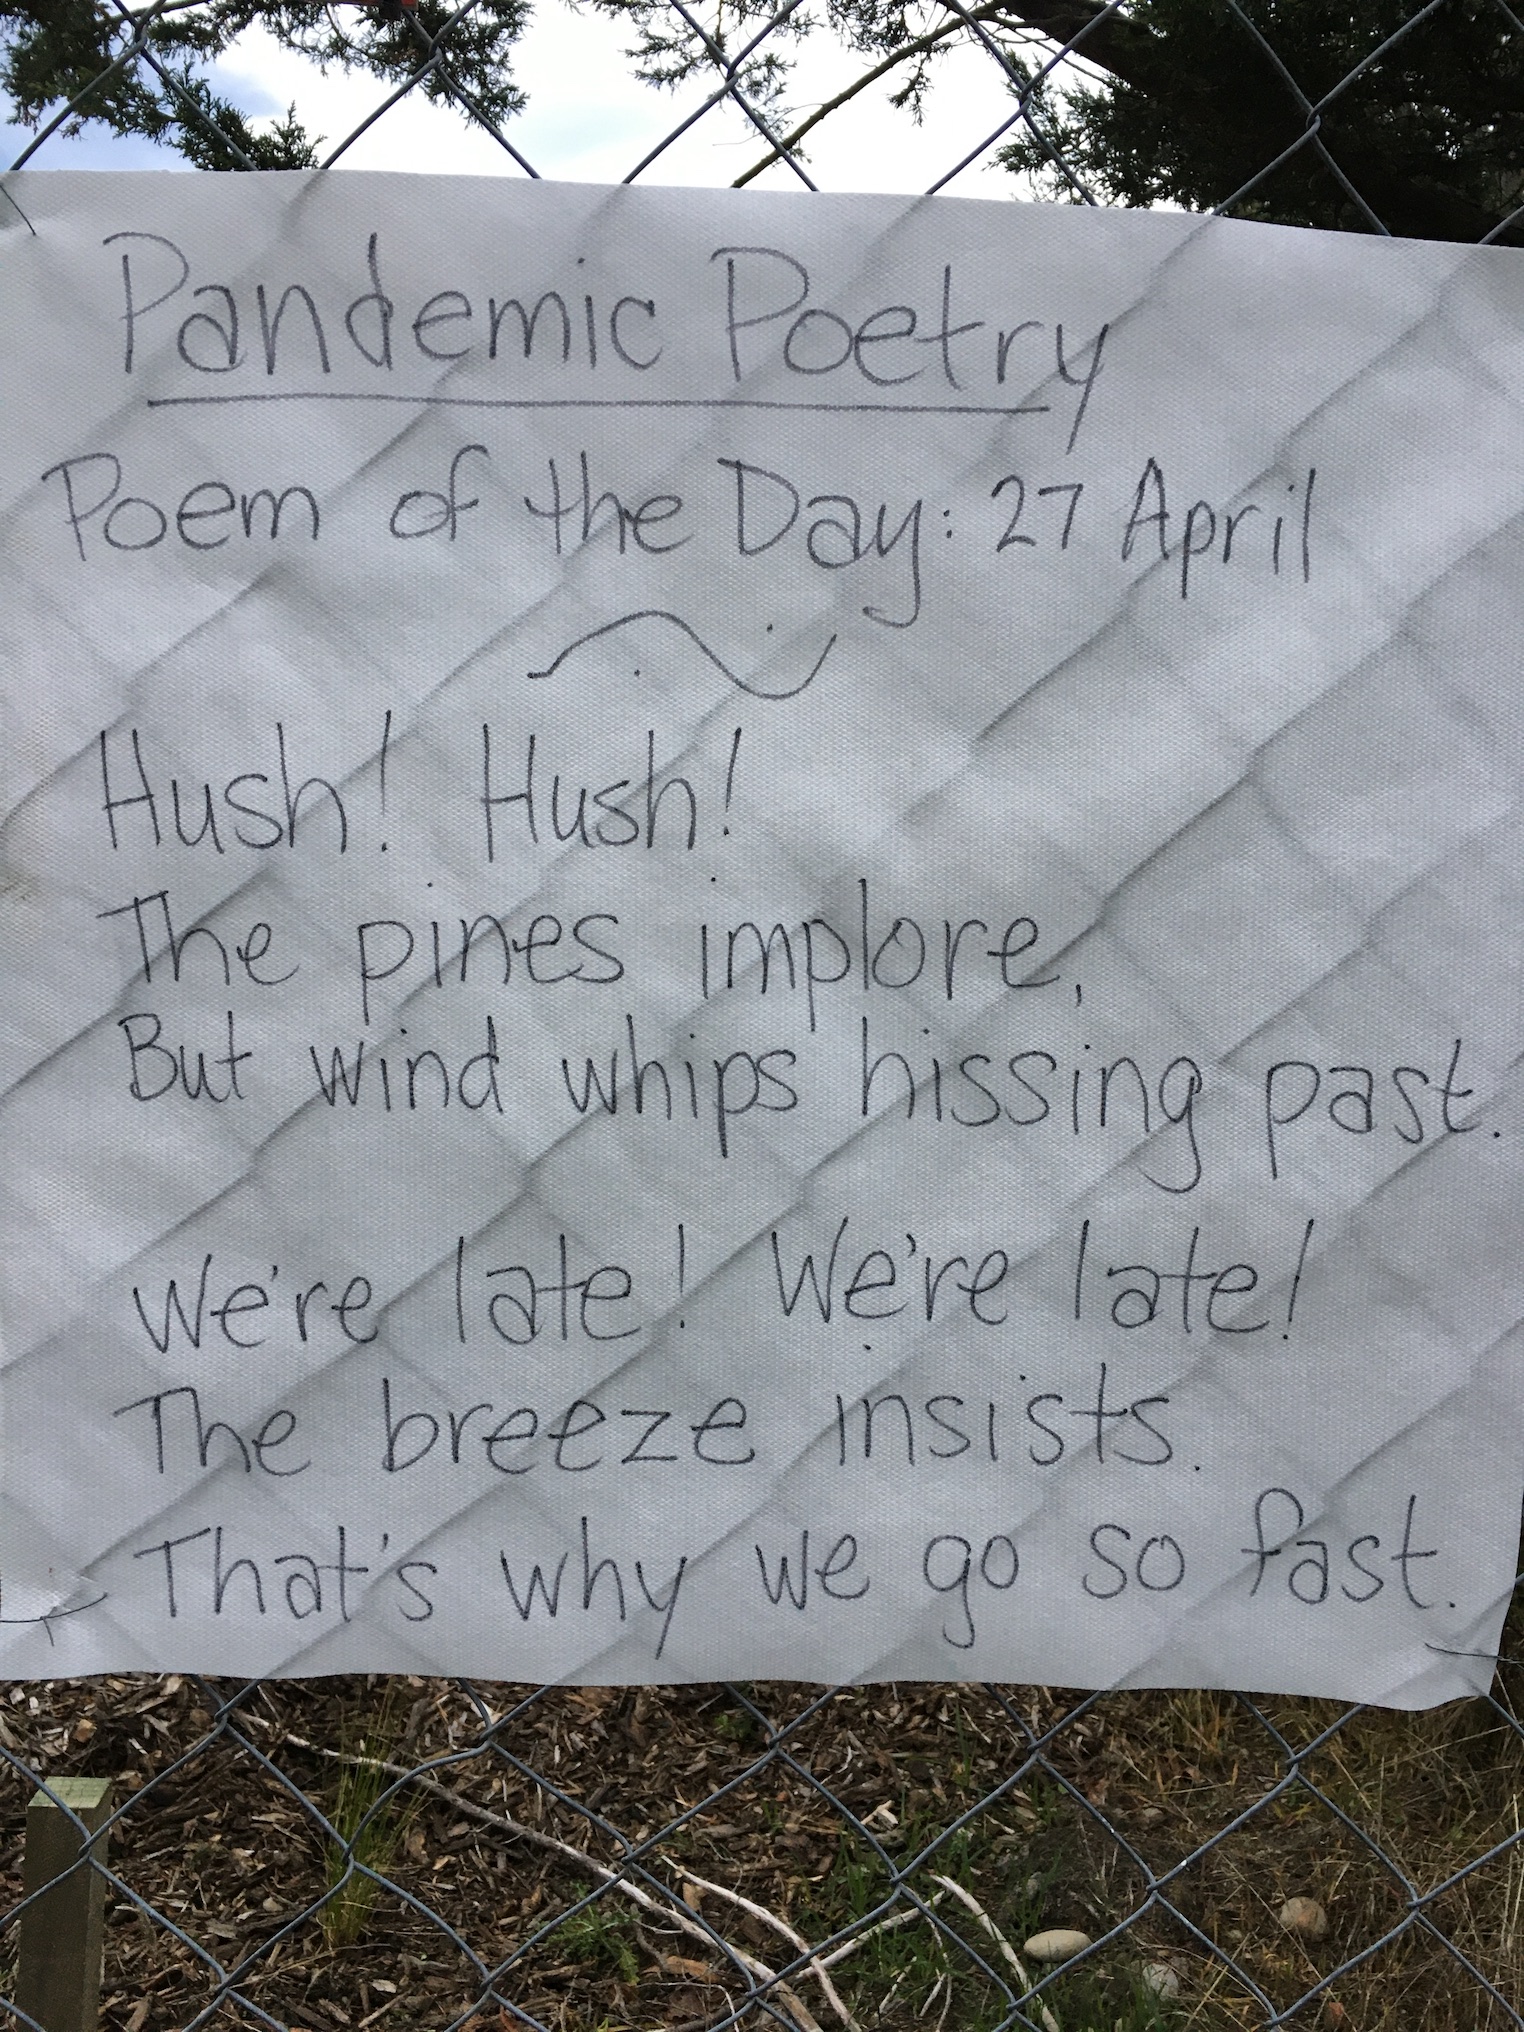 Pandemic Poetry
Poem of the Day: 27 April
Hush! Hush!
The pines implore,
But wind whips hissing past.
We're late! We're late!
The breeze insists.
That's why we go so fast.